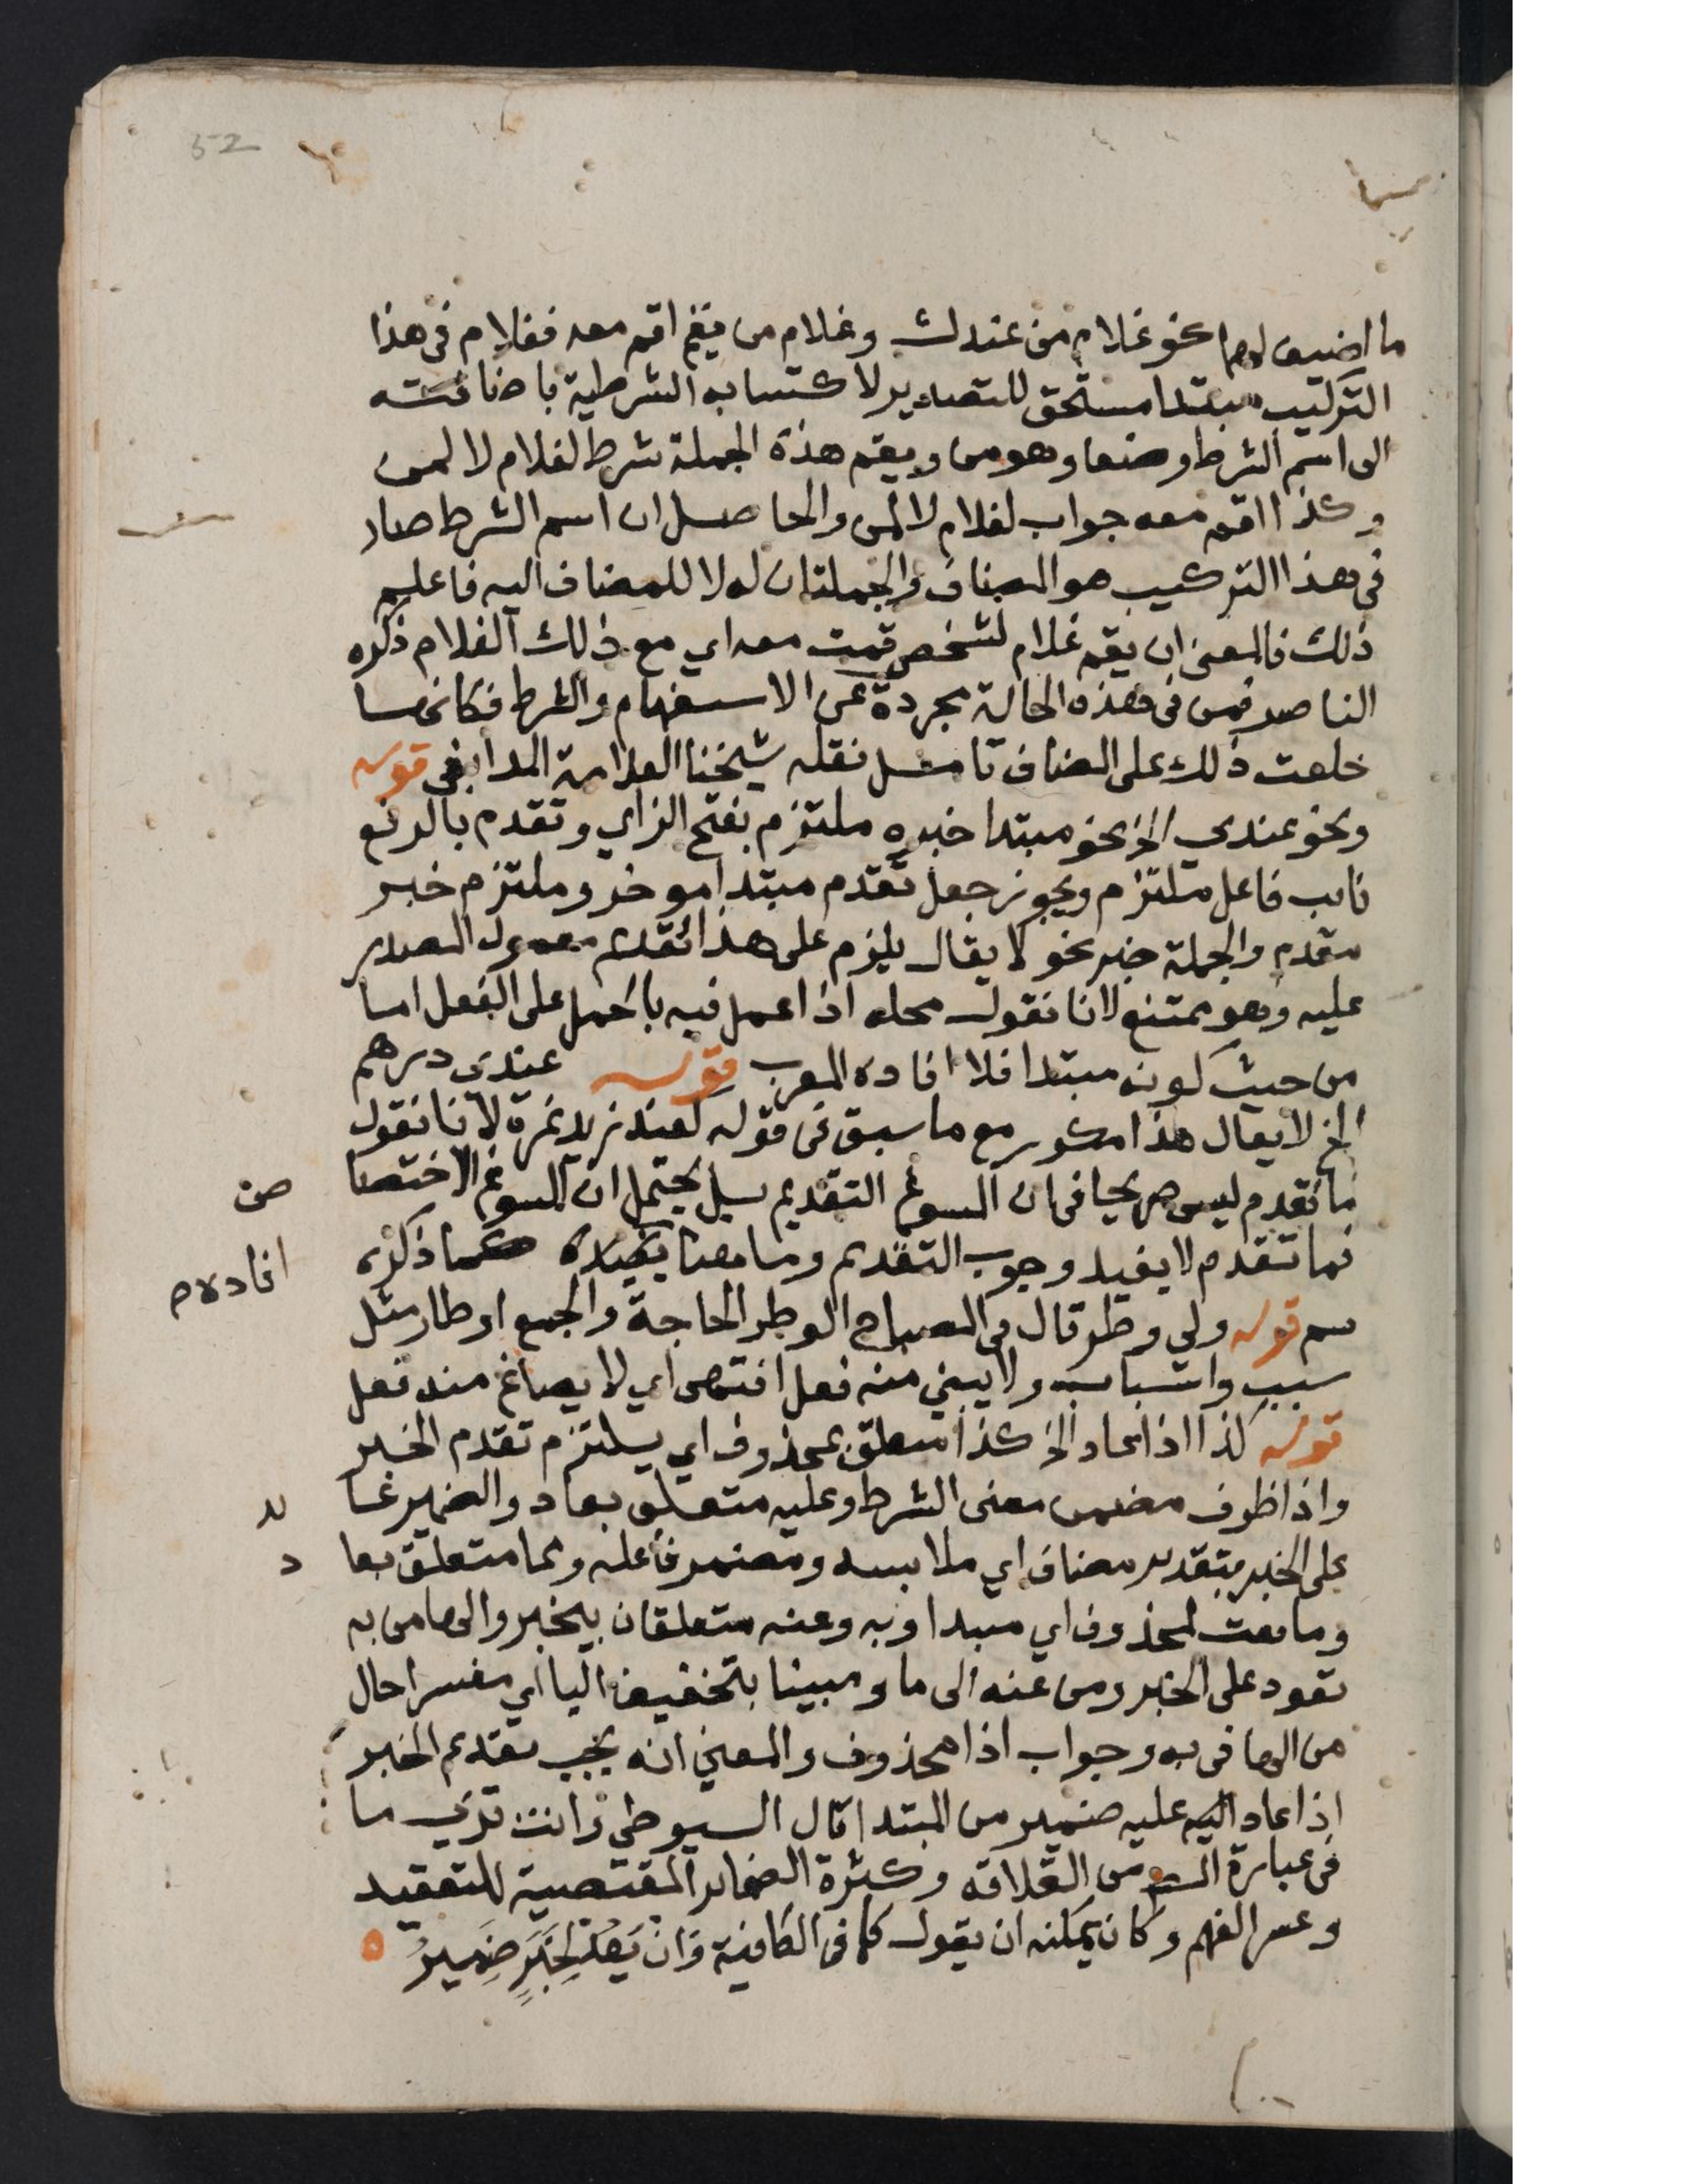 52
ما اضيف لهما نحو غلام من عندك وغلام من يقم اقم معه فغلام في هذا
التركيب مبتدا مستحق للتصدير لاكتسابه الشرطية باضافته
الى اسم الشرط وضعا وهو من ويقم هذه الجملة شرط لغلام لا لمن
وكذا اقم معه جواب لغلام لا لمن والحاصل ان اسم الشرط صار
في هذا التركيب هو المضاف والجملتان له لا للمضاف اليه فاعلم
ذلك فالمعنى ان يقم غلام لشخص قمت معه اي مع ذلك الغلام ذكره
الناصر فمن في هذه الحالة مجردة عن الاستفهام والشرط فكانها
خلعت ذلك على المضاف تامل نقله شيخنا العلامة المدابغي قوله
ونحو عندي الخ نحو مبتدا خبره ملتزم بفتح الزاي وتقدم بالرفع
نايب فاعل ملتزم ويجوز جعل تقدم مبتدا موخر وملتزم خبر
مقدم والجملة خبر نحو لا يقال يلزم على هذا تقديم معمول المصدر
عليه وهو ممتنع لانا نقول محله اذا عمل فيه بالحمل على الفعل اما
من حيث كونه مبتدا فلا افاده المعرب قوله عندي درهم
الخ لا يقال هذا مكرر مع ما سبق في قوله لعند زيد نمرة لانا نقول
ما تقدم ليس صريحا في ان المسوغ التقديم بل يحتمل ان المسوغ الاختصا
ص
فما تقدم لا يفيد وجوب التقديم وما هنا يفيده كما ذكره
افاده م
سم قوله ولي وطر قال في المصباح الوطر الحاجة والجمع اوطار مثل
سبب واسباب ولا يبني منه فعل انتهى اي لا يصاغ منه فعل
قوله كذا اذا عاد الخ كذا متعلق بمحذوف اي يلتزم تقدم الخبر
واذا ظرف مضمن معنى الشرط وعليه متعلق بعاد والضمير عا
يد
على الخبر بتقدير مضاف اي ملابسه ومضمر فاعله ومما متعلق بعا
د
وما نعت لمحذوف اي مبتدا وبه وعنه متعلقان بيخبر والها من به
تعود على الخبر ومن عنه الى ما ومبينا بتخفيف اليا اي مفسرا حال
من الها في به وجواب اذا محذوف والمعنى انه يجب تقديم الخبر
اذا عاد اليه عليه ضمير من المبتدا قال السيوطي وانت ترى ما
في عبارة من القلاقه وكثرة الضماير المقتضية للتعقيد
وعسر الفهم وكان يمكنه ان يقول كما في الكافية وَانْ يَعُدْ لِخَبَرٍ ضَمِيرُ ه